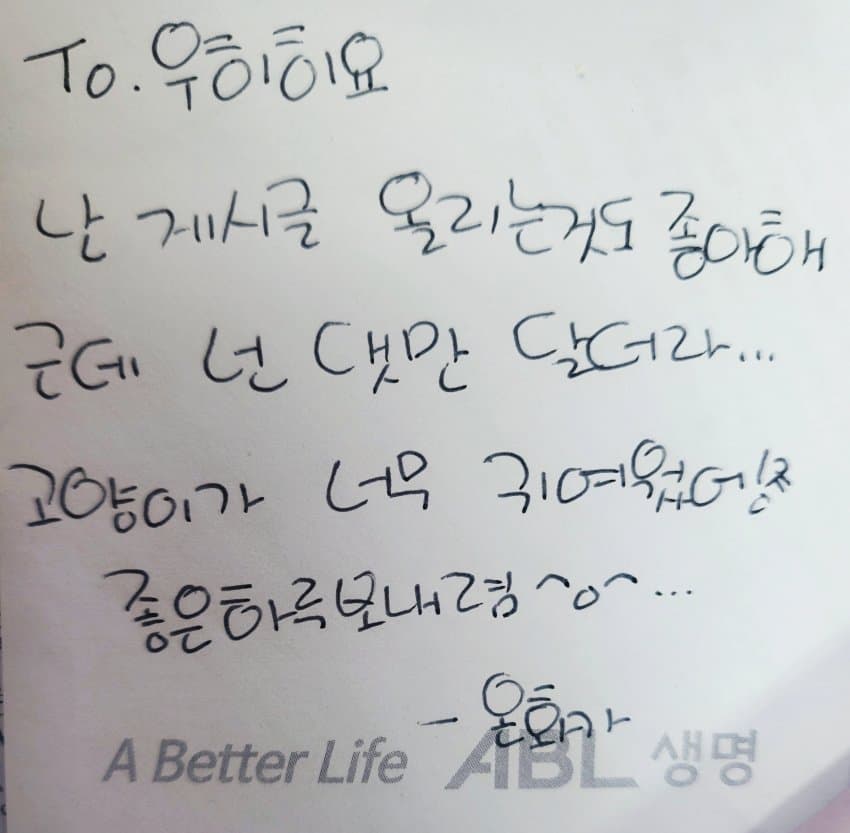 To. 우히히요
난 게시글 올리는것도 좋아해
근데 넌 댓만 달더라...
고양이가 너무 귀여웠어!
좋은하루보내렴 ^o^...
- 온화가
A Better Life ABL 생명